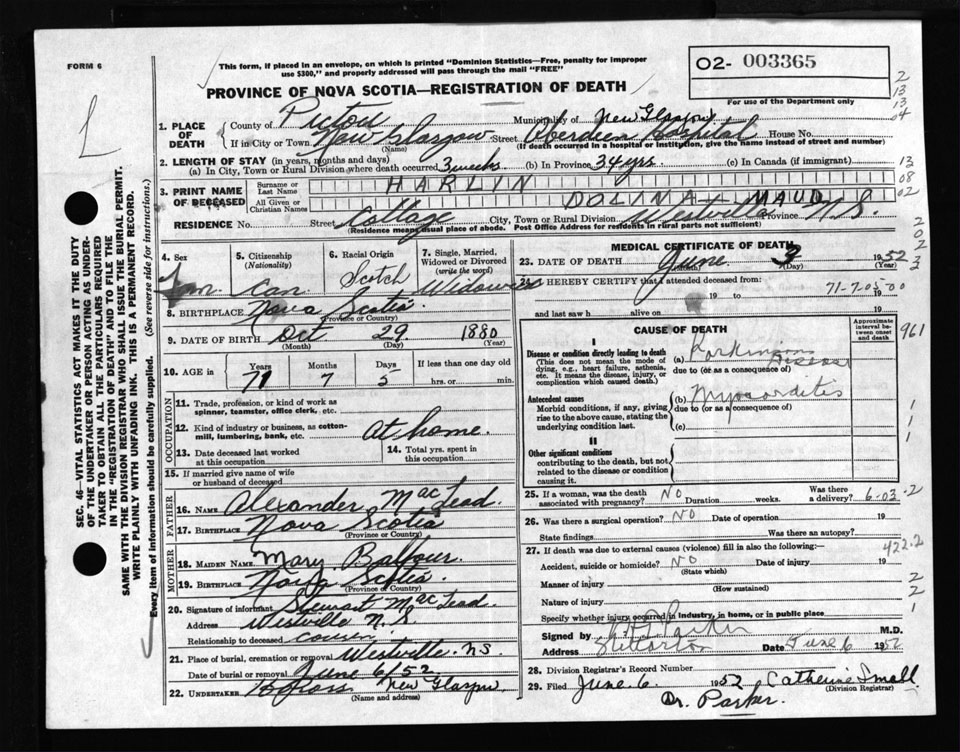 FORM 6
This form, if placed in an envelope, on which is printed "Dominion Statistics—Free, penalty for improper
use $300," and properly addressed will pass through the mail "FREE"
PROVINCE OF NOVA SCOTIA—REGISTRATION OF DEATH
02- 003365
For use of the Department only
2
13
13
04
L
1. PLACE OF DEATH
County of Pictou
Municipality of New Glasgow
If in City or Town New Glasgow Street Aberdeen Hospital House No.
(Name) (If death occurred in a hospital or institution, give the name instead of street and number)
2. LENGTH OF STAY (in years, months and days)
(a) In City, Town or Rural Division where death occurred 3 weeks (b) In Province 34 yrs (c) In Canada (if immigrant)
13
08
02
3. PRINT NAME OF DECEASED
Surname or Last Name HARLIN
All Given or Christian Names DOLINA MAUD
RESIDENCE No. Street College City, Town or Rural Division Westville Province N.S.
(Residence means usual place of abode. Post Office Address for residents in rural parts not sufficient)
SEC. 46—VITAL STATISTICS ACT MAKES IT THE DUTY
OF THE UNDERTAKER OR PERSON ACTING AS UNDER-
TAKER TO OBTAIN ALL THE PARTICULARS REQUIRED
IN THE "REGISTRATION OF DEATH" AND TO FILE THE
SAME WITH THE DIVISION REGISTRAR WHO SHALL ISSUE THE BURIAL PERMIT.
WRITE PLAINLY WITH UNFADING INK. THIS IS A PERMANENT RECORD.
Every item of information should be carefully supplied. (See reverse side for instructions.)
4. Sex
5. Citizenship (Nationality) Can.
6. Racial Origin Scotch
7. Single, Married, Widowed or Divorced (write the word) Widowed
8. BIRTHPLACE Nova Scotia
(Province or Country)
9. DATE OF BIRTH Oct 29 1880
(Month) (Day) (Year)
10. AGE in Years 71 Months 7 Days 5 If less than one day old
hrs. or min.
OCCUPATION
11. Trade, profession, or kind of work as
spinner, teamster, office clerk, etc.
12. Kind of industry or business, as cotton-
mill, lumbering, bank, etc. At home.
13. Date deceased last worked
at this occupation
14. Total yrs. spent in
this occupation
15. If married give name of wife
or husband of deceased
FATHER
16. NAME Alexander MacLead
17. BIRTHPLACE Nova Scotia
(Province or Country)
MOTHER
18. MAIDEN NAME Mary Balfour
19. BIRTHPLACE Nova Scotia
(Province or Country)
20. Signature of informant Stewart MacLead.
Address Westville N.S.
Relationship to deceased cousin
21. Place of burial, cremation or removal Westville. NS.
Date of burial or removal June 6/52
22. UNDERTAKER New Glasgow
(Name and address)
MEDICAL CERTIFICATE OF DEATH
23. DATE OF DEATH June 3 1952
(Month) (Day) (Year)
24. I HEREBY CERTIFY that I attended deceased from:
71-7-05-00
19 to 19
and last saw h alive on 19
CAUSE OF DEATH
Approximate interval between onset and death
961
I
Disease or condition directly leading to death
(This does not mean the mode of
dying, e.g., heart failure, asthenia,
etc. It means the disease, injury, or
complication which caused death.)
(a) Parkinsons Disease
due to (or as a consequence of)
Antecedent causes
Morbid conditions, if any, giving
rise to the above cause, stating the
underlying condition last.
(b) Myocarditis
due to (or as a consequence of)
(c)
1
1
1
II
Other significant conditions
contributing to the death, but not
related to the disease or condition
causing it.
25. If a woman, was the death
associated with pregnancy? NO Duration weeks. Was there
a delivery? 6-03-2
26. Was there a surgical operation? NO Date of operation 19
State findings Was there an autopsy?
27. If death was due to external causes (violence) fill in also the following:—
422.2
Accident, suicide or homicide? NO Date of injury 19
(State which)
Manner of injury
(How sustained)
Nature of injury
2
2
1
Specify whether injury occurred in industry, in home, or in public place
Signed by Parker M.D.
Address Stellarton Date June 6 1952
28. Division Registrar's Record Number
29. Filed June 6. 1952 Catherine Small
(Division Registrar)
Dr. Parker.